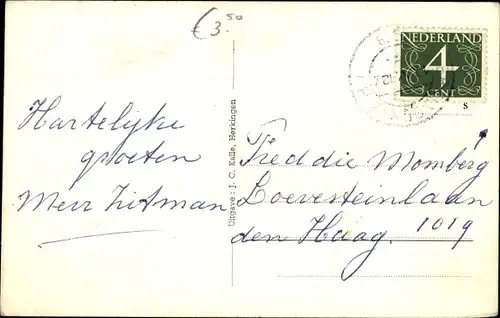 €3.50
NEDERLAND
4
CENT
Hartelijke
groeten
Uitgave : J. C. Kalle, Herkingen
Freddie Momberg
Loevesteinlaan
1019
den Haag.
S